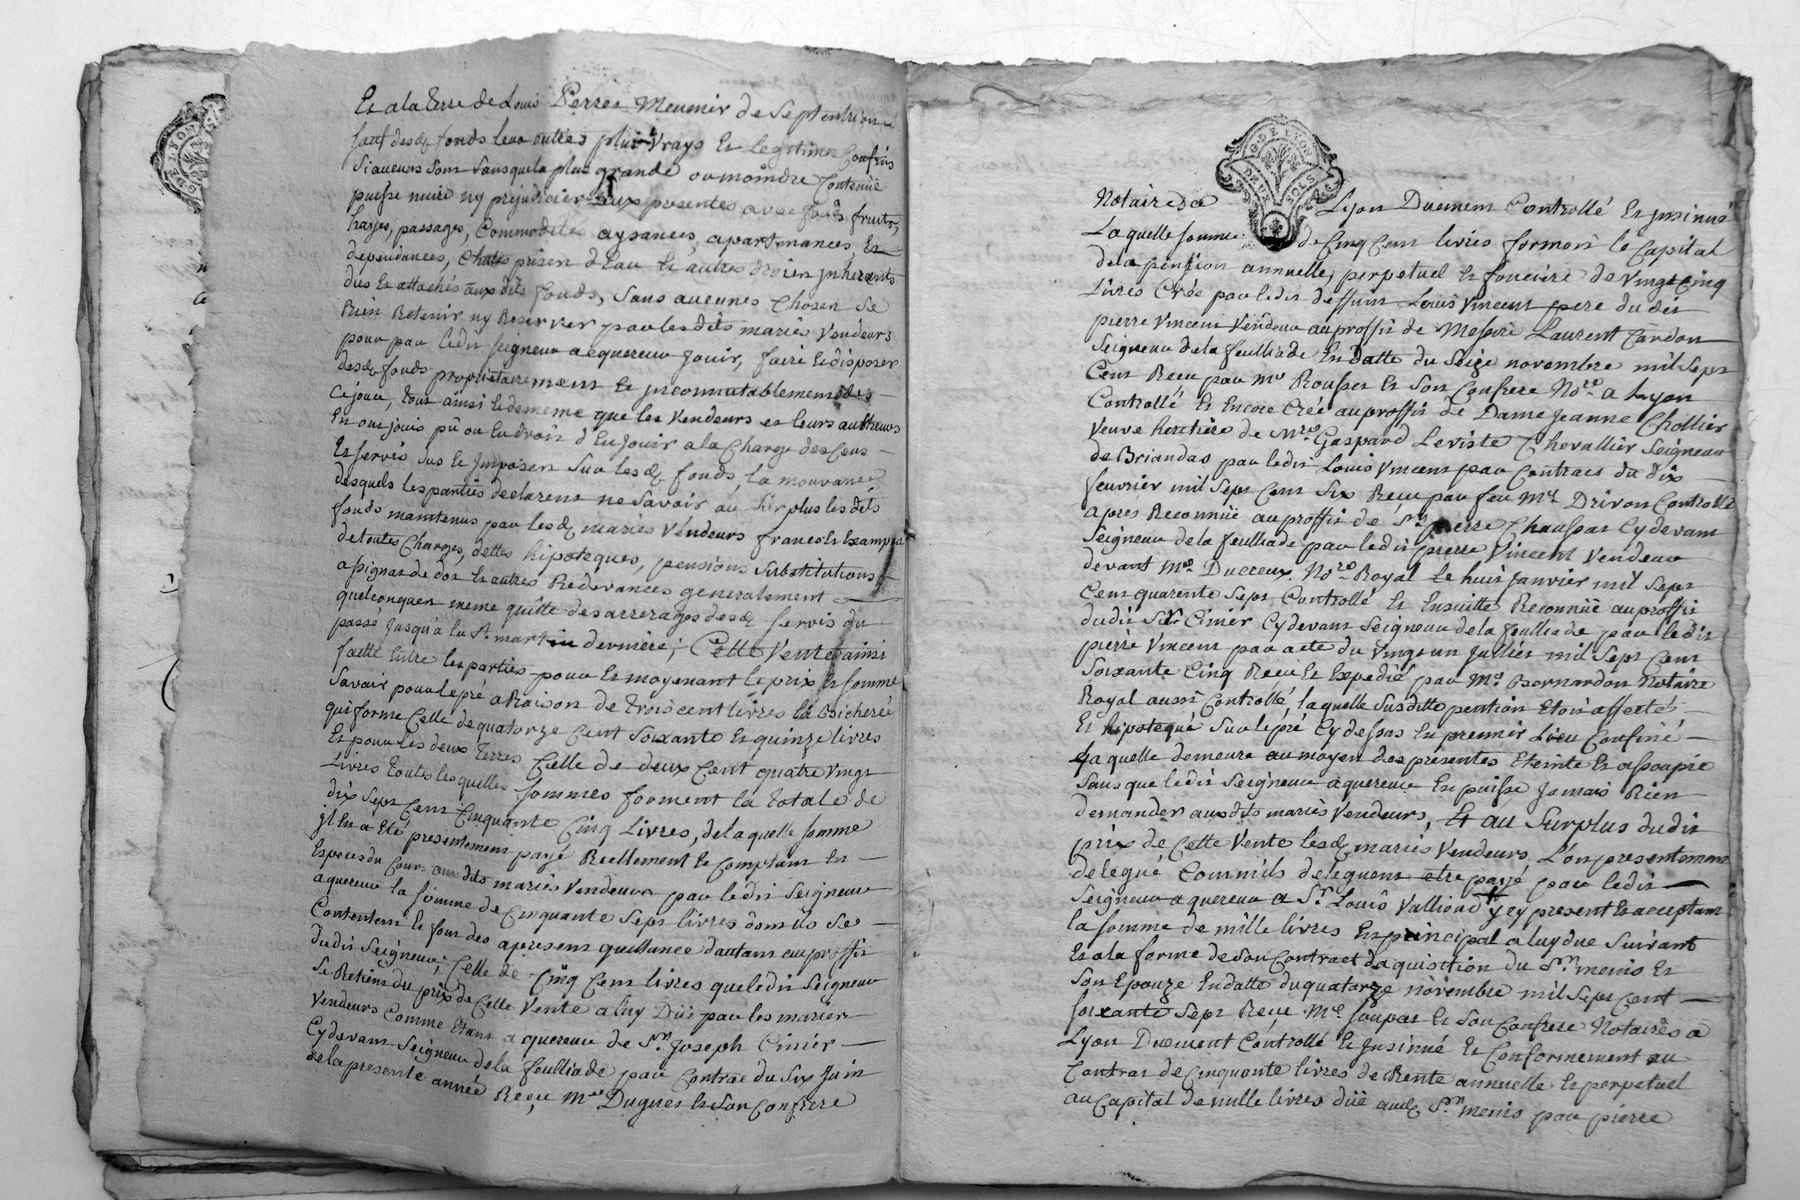 Et a la terre de Louis Perret Meunier de Septentrion
sauf desd. fonds leur autres plus vrays Et Legitimes Confins
Siaucuns sont sans que la plus grande ou moindre Contenüe
puisse nuire ny prejudicier aux presentes avec fonds fruits,
hayes, passages, Commodités aysances, apartenances, Et
dependances, Chutes prises d'Eau Et autres droits jnherants
dus Et attachés aux dits fonds, Sans aucunes Choses Se
Rien Retenir ny Reserver par les dits mariés Vendeurs
pour par ledit seigneur aquereur Jouir, faire Et disposer
desd. fonds proprietairement Et jncommutablement dès
cejour, tout ainsi Et de meme que les Vendeurs et leurs autheurs
En ont jouis pû ou En droit d'En Jouir a la Charge des Cens
Et servis dus Et Jmposés Sur lesd. fonds, la mouvance
desquels les parties declarent ne Savoir au surplus les dits
fonds maintenus par lesd. mariés Vendeurs francs Et Exempts
de toutes Charges, dettes hipoteques, pensions Substitutions
asignat de dot Et autres Redevances generalement
quelconques meme quitte des arrerages desd. servis du
passé Jusqu'a la St. martin derniere; Cette Vente ainsi
faitte Entre les parties pour Et moyenant le prix Et somme
Savoir pour le pré a Raison de trois cent livres la Bicherée
qui forme Celle de quatorze Cent Soixante Et quinze livres
Et pour les deux terres Celle de deux Cent quatre Vingt
Livres toutes les quelles sommes forment la totale de
dix Sept Cent Cinquante Cinq Livres, de la quelle somme
jl En a Eté presentement payé Reellement Et Comptant En
Especes du Cours aux dits mariés Vendeurs par ledit Seigneur
aquereur la somme de Cinquante Sept livres dont ils Se
Contentent Et font des apresent quittance d'autant au proffit
dudit Seigneur; Celle de Cinq Cent livres que ledit Seigneur
Se Retient du prix de Cette Vente a luy Düe par les mariés
Vendeurs Comme Etant a quereur de Sr. Joseph Cinier
Cy devant Seigneur de la feulliade par Contrac du Six Juin
de la presente année Reçu Me Dugues Et Son Confrere
G. DE LYON
DEUX SOLS
Notaires a Lyon Duement Controllé Et jnsinué
La quelle somme de Cinq Cent livres forment le Capital
de la pention annuelle, perpetuel Et fonciere de Vingt Cinq
Livres Créée par ledit deffunt Louis Vincent pere du dit
pierre Vincent Vendeur au proffit de Messire Laurent Cardon
Seigneur de la feulliade En datte du Seize novembre mil Sept
Cent Reçu par Me Rousset Et Son Confrere Nore. a Lyon
Controllé Et Encore Créé au proffit de Dame Jeanne Chollier
Veuve heritière de Mre. Gaspard Leviste Chevallier Seigneur
de Briandas par ledit Louis Vincent par Contract du dix
feuvrier mil Sept Cent Six Reçu par feu Me. Drivon Controllé
apres Reconnüe au proffit de Sr. pierre Chaussat Cy devant
Seigneur de la feulliade par ledit pierre Vincent Vendeur
devant Me. Ducreux Nore. Royal Le huit Janvier mil Sept
Cent quarente Sept Controllé Et Ensuitte Reconnüe au proffit
dudit Sr. Cinier Cy devant Seigneur de la feulliade par ledit
pierre Vincent par acte du Vingt un Juillet mil Sept Cent
Soixante Cinq Reçu Et Expedié par Me. Bernardon Notaire
Royal aussi Controllé, la quelle Susditte pention Etoit affectée
Et hipotequé Sur le pré Cy dessus En premier Lieu Confiné
La quelle demeure au moyen des presentes Eteinte Et assoupie
Sans que ledit Seigneur aquereur En puisse Jamais Rien
demander aux dits mariés Vendeurs, Et au Surplus dudit
prix de Cette Vente lesd. mariés Vendeurs, L'on presentement
delegué Comm'ils deleguent etre payé par ledit
Seigneur aquereur a Sr. Louis Vallioud y cy present Et acceptant
la somme de mille livres En principal a luy due Suivant
Et a la forme de Son Contract d'aquisition du Sr. menis Et
Son Epouze En datte du quatorze novembre mil Sept Cent
soixante Sept Reçu Me. Soupat Et Son Confrere Notaires a
Lyon Duement Controllé Et Jnsinué Et Conformement au
Contrat de Cinquante livres de Rente annuelle Et perpetuel
au Capital de mille livres düe aud. Sr. menis par pierre